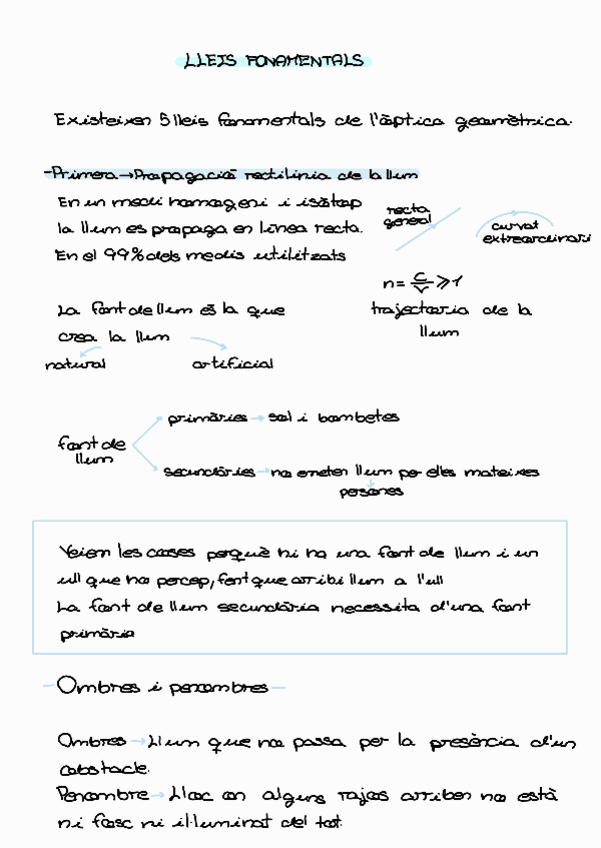 LLEIS FONAMENTALS
Existeixen 5 lleis fonamentals de l'òptica geomètrica.
-Primera→Propagació rectilínia de la llum
En un medi homogeni i isòtop
la llum es propaga en línea recta.
En el 99% dels medis utilitzats
recta
general
curvat
extreordinari
n = c/v ≥ 1
trajectoria de la
llum
La font de llum és la que
crea la llum
natural
artificial
font de
llum
primàries → sol i bombetes
secundàries → no emeten llum per elles mateixes
persones
Veiem les coses perquè hi ha una font de llum i un
ull que ho percep, fent que arribi llum a l'ull
La font de llum secundària necessita d'una font
primària
- Ombres i penombres -
Ombres → Llum que no passa per la presència d'un
obstacle.
Penombre → Lloc on alguns rajos arriben no està
ni fosc ni il·luminat del tot.